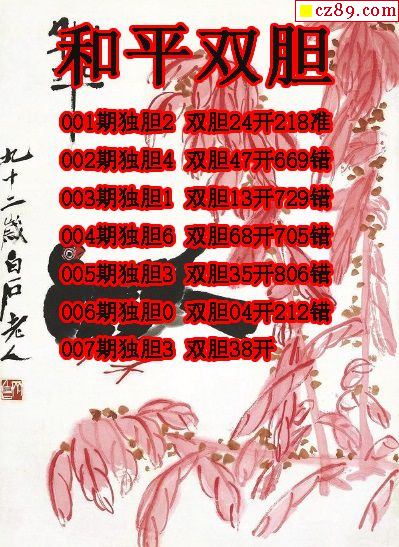 cz89.com
和平双胆
001期独胆2 双胆24开218准
002期独胆4 双胆47开669错
003期独胆1 双胆13开729错
004期独胆6 双胆68开705错
005期独胆3 双胆35开806错
006期独胆0 双胆04开212错
007期独胆3 双胆38开
九十二岁白石老人